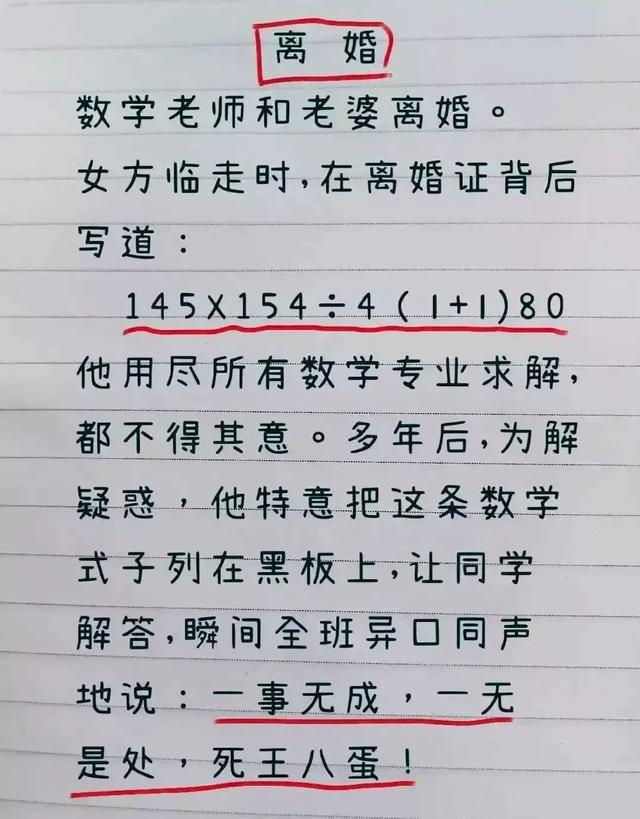 离婚
数学老师和老婆离婚。
女方临走时,在离婚证背后
写道:
145X154÷4(1+1)80
他用尽所有数学专业求解,
都不得其意。多年后,为解
疑惑,他特意把这条数学
式子列在黑板上,让同学
解答,瞬间全班异口同声
地说:一事无成,一无
是处,死王八蛋!